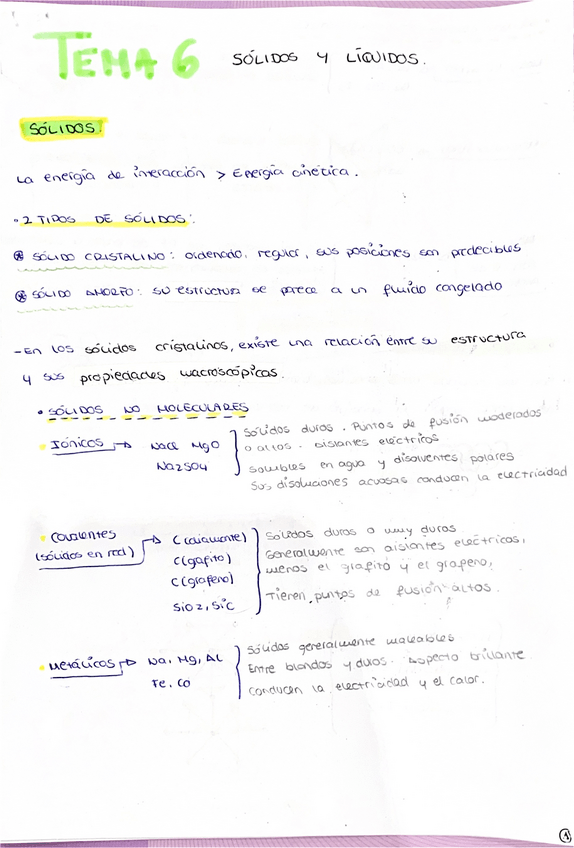 TEMA 6 SÓLIDOS Y LÍQUIDOS.
SÓLIDOS.
La energía de interacción > Energía cinética.
· 2 TIPOS DE SÓLIDOS:
⊛ SÓLIDO CRISTALINO: ordenado, regular, sus posiciones son predecibles
⊛ SÓLIDO AMORFO: su estructura se parece a un fluido congelado
- En los sólidos cristalinos, existe una relación entre su estructura
y sus propiedades macroscópicas.
• SÓLIDOS NO MOLECULARES
• Iónicos → NaCl MgO
Na2SO4
Sólidos duros. Puntos de fusión moderados
o altos. aislantes eléctricos
solubles en agua y disolventes polares
Sus disoluciones acuosas conducen la electricidad
• Covalentes → C (diamante)
(sólidos en red)
C (grafito)
C (grafeno)
SiO2, SiC
Sólidos duros o muy duros
Generalmente son aislantes eléctricos,
menos el grafito y el grafeno,
Tienen puntos de fusión altos.
• Metálicos → Na, Mg, Al
Fe, Co
Sólidos generalmente maleables
Entre blandos y duros. Aspecto brillante
conducen la electricidad y el calor.
1